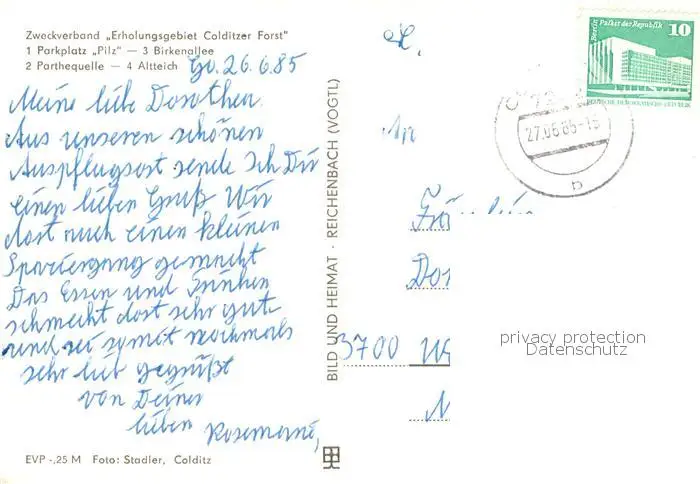 Zweckverband „Erholungsgebiet Colditzer Forst"
1 Parkplatz „Pilz" — 3 Birkenallee
2 Parthequelle — 4 Altteich
26.6.85
Meine liebe Dorothea
Aus unseren schönen
Ausflugsort sende Ich Dir
einen lieben Gruß Wir
dort auch einen kleinen
Spaziergang gemacht
Das Essen und Trinken
schmeckt dort sehr gut
und sei somit nochmals
sehr lieb gegrüßt
von Deiner
lieben Rosemarie,
EVP -,25 M Foto: Stadler, Colditz
BILD UND HEIMAT · REICHENBACH (VOGTL)
An
Dor
3700
Berlin Palast der Republik 10
DEUTSCHE DEMOKRATISCHE REPUBLIK
27.06.85-15
b
privacy protection
Datenschutz